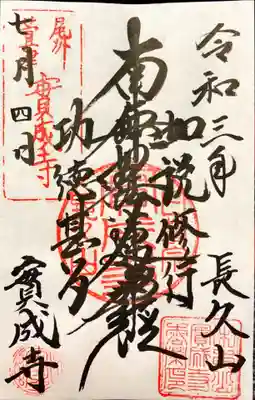 令和三年
七月四日
如説修行
南無妙法蓮華経
功徳甚多
長久山
實成寺